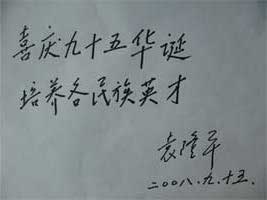 喜庆九十五华诞
培养各民族英才
袁隆平
二00八.九.十五.